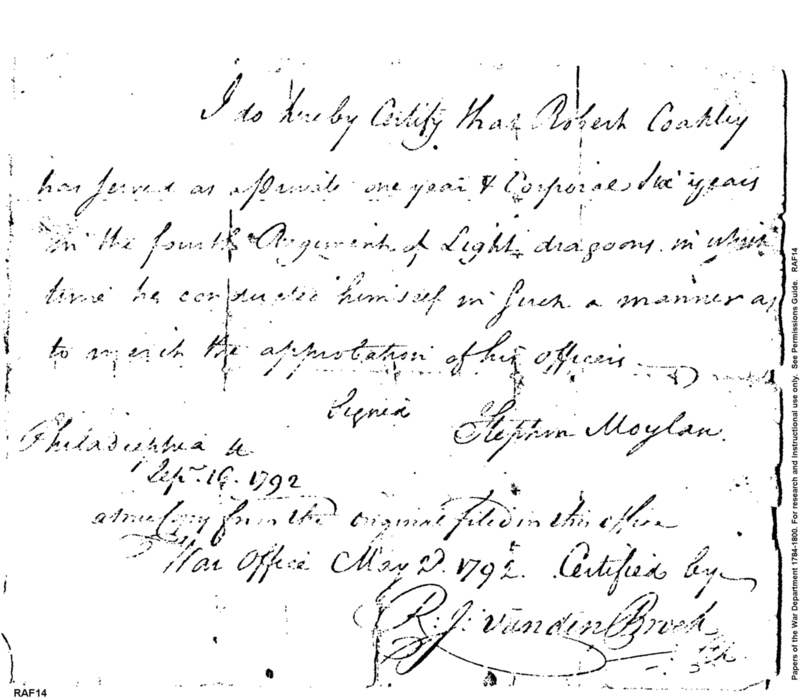 I do hereby Certify that Robert Coakley
has served as a private one year & Corporal Six years
in the fourth Regiment of Light dragoons in which
time he conducted himself in such a manner as
to merit the approbation of his officers
Signed
Stephen Moylan
Philadelphia
Sepr. 16. 1792
a true Copy from the original filed in this office
War Office May 2d. 1792. Certified by
R. J. Vanden Broek
RAF14
Papers of the War Department 1784-1800. For research and Instructional use only. See Permissions Guide. RAF14